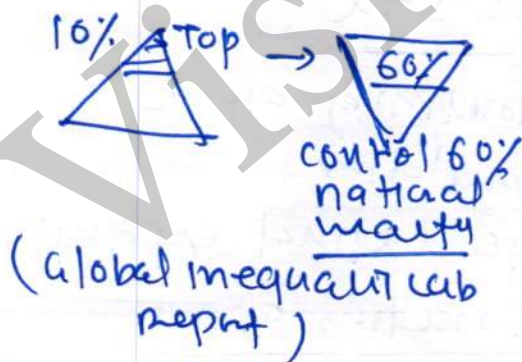 10% Top → 60%
control 60%
national
wealth
(Global inequality lab
report)